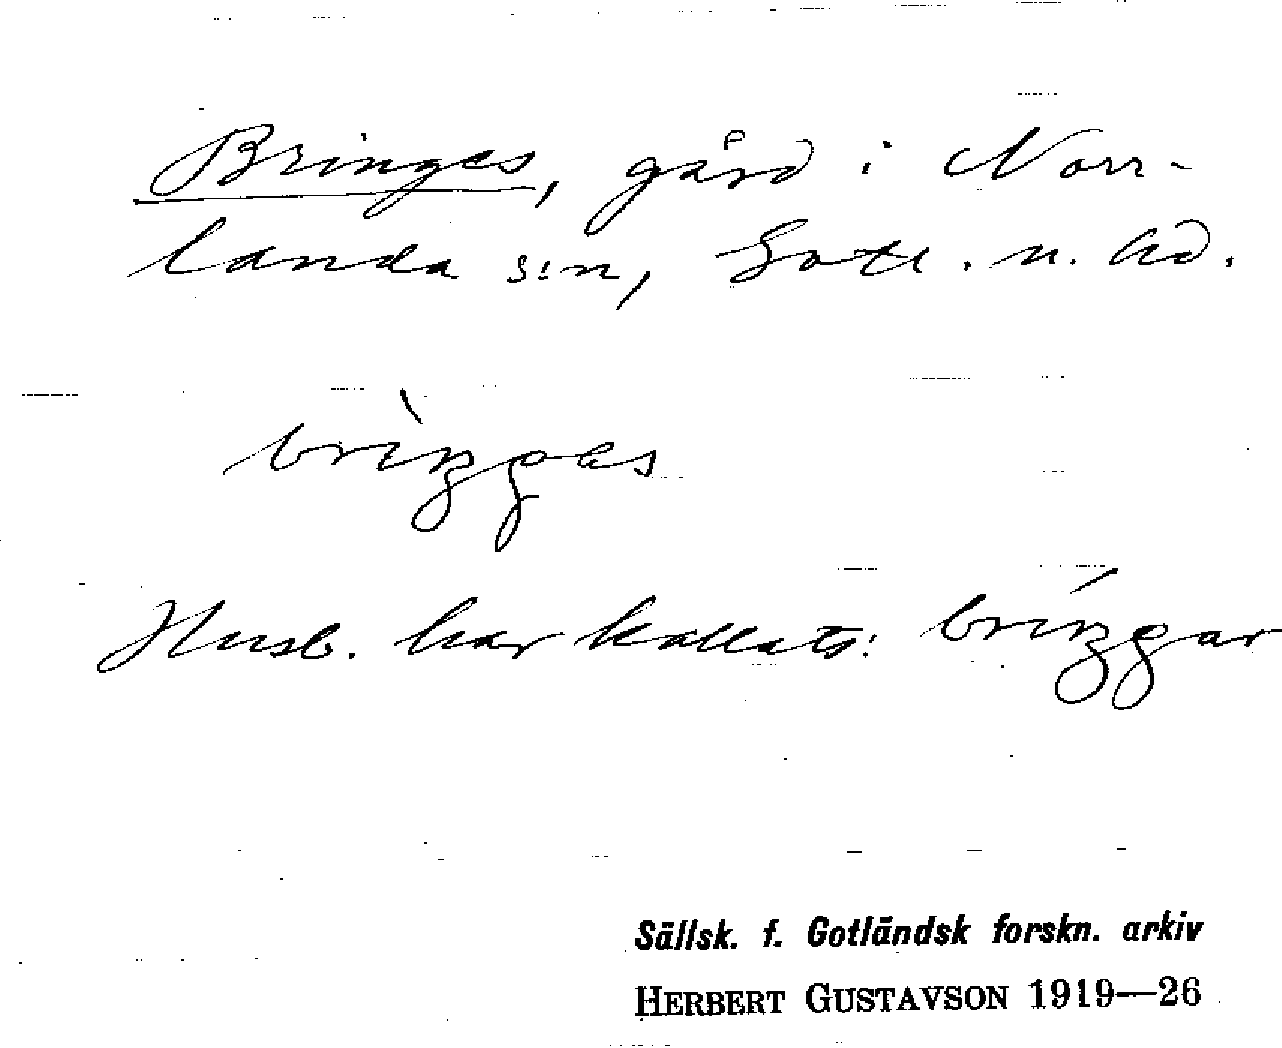 Bringes, gård i Norr-
landa s:n, Gotl. n. hd.
brìŋges
Husb. har kallats: bríŋgar
Sällsk. f. Gotländsk forskn. arkiv
HERBERT GUSTAVSON 1919—26